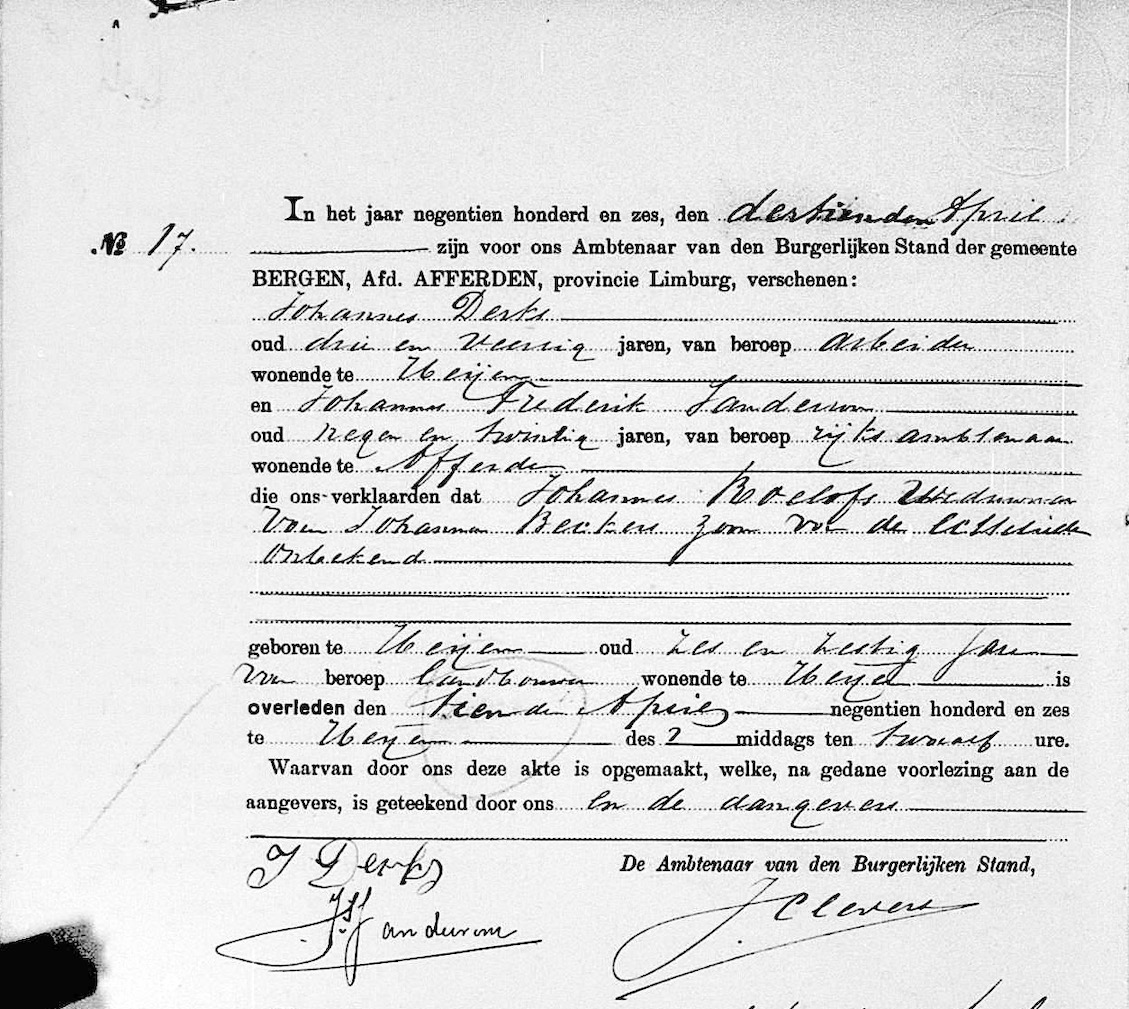 In het jaar negentien honderd en zes, den dertienden April
№ 17. zijn voor ons Ambtenaar van den Burgerlijken Stand der gemeente
BERGEN, Afd. AFFERDEN, provincie Limburg, verschenen:
Johannes Derks
oud drie en veertig jaren, van beroep arbeider
wonende te Heijen
en Johannes Frederik
oud negen en twintig jaren, van beroep rijks ambtenaar
wonende te Afferden
die ons verklaarden dat Johannes Roelofs Weduwnaar
van Johanna Beckers zoon van de
onbekend
geboren te Heijen oud zes en zestig jaren
van beroep landbouwer wonende te Heijen is
overleden den tienden April negentien honderd en zes
te Heijen des middags ten twaalf ure.
Waarvan door ons deze akte is opgemaakt, welke, na gedane voorlezing aan de
aangevers, is geteekend door ons en de aangevers
J Derks
De Ambtenaar van den Burgerlijken Stand,
J Clevers